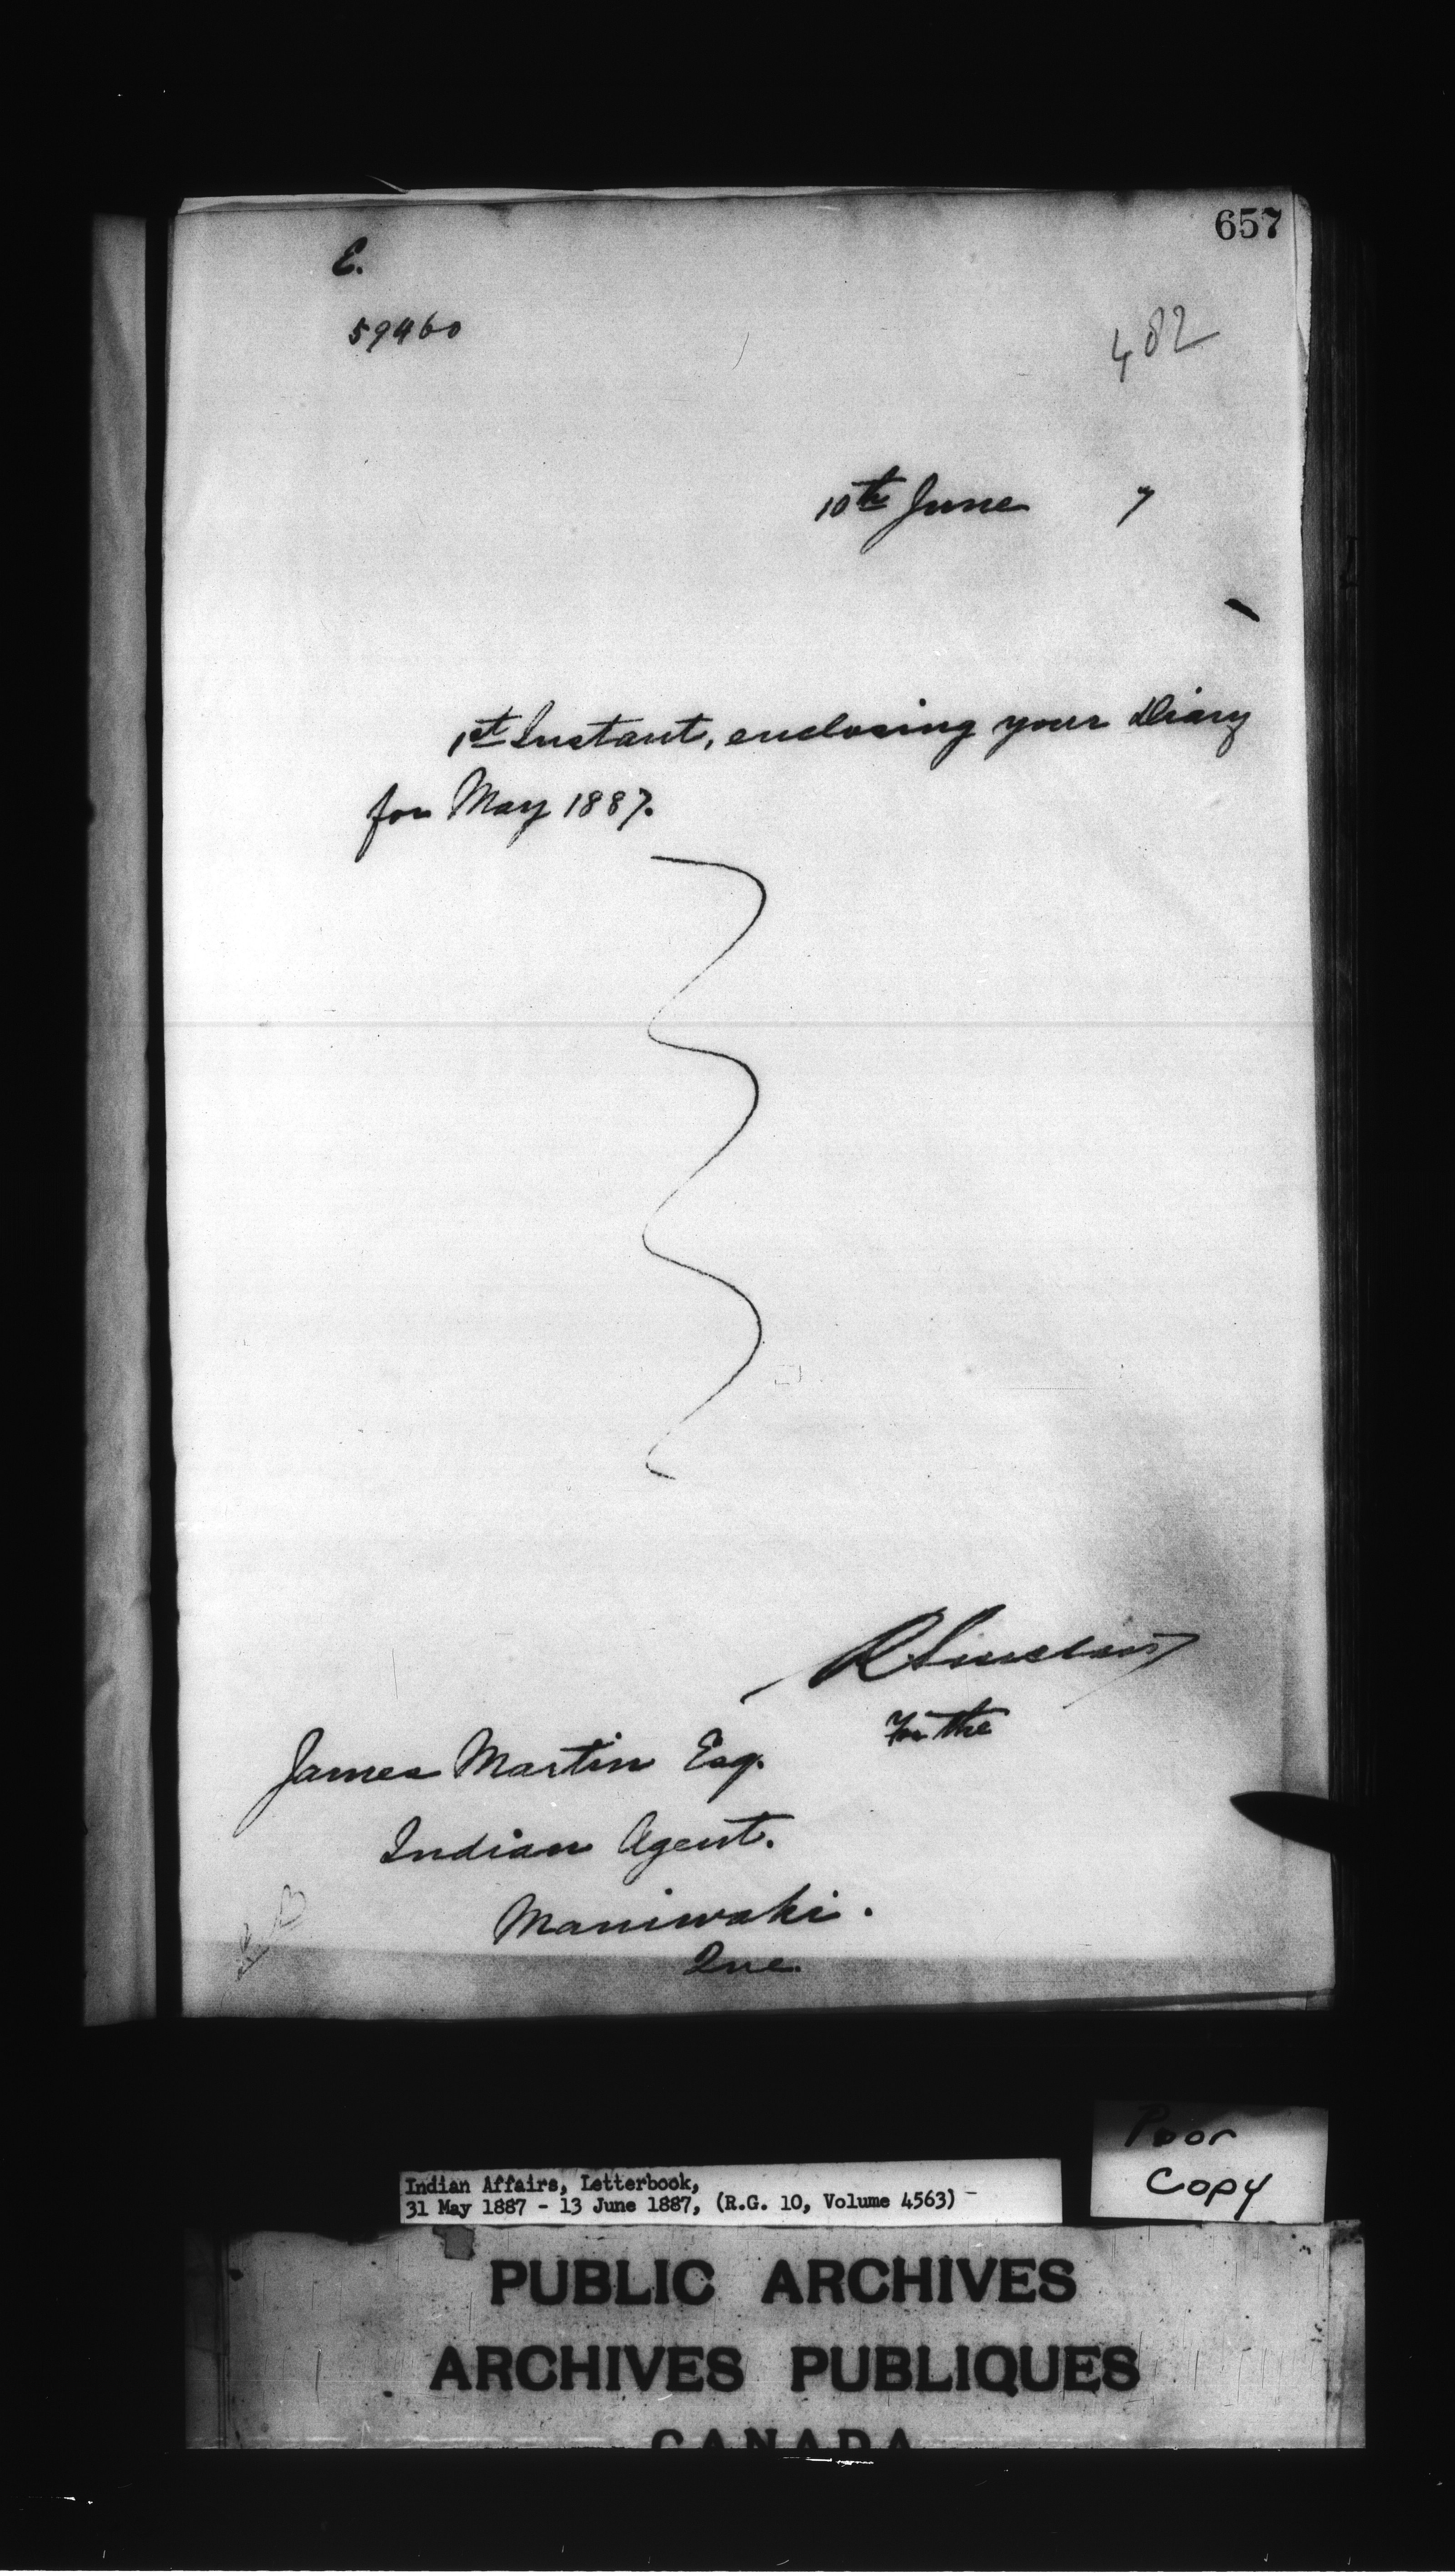 657
E.
59460
482
10th June 7
1st Instant, enclosing your Diary
for May 1887.
R Sinclair
For the
James Martin Esq.
Indian Agent.
Maniwaki.
Que.
Poor
Copy
Indian Affairs, Letterbook,
31 May 1887 - 13 June 1887, (R.G. 10, Volume 4563)
PUBLIC ARCHIVES
ARCHIVES PUBLIQUES
CANADA